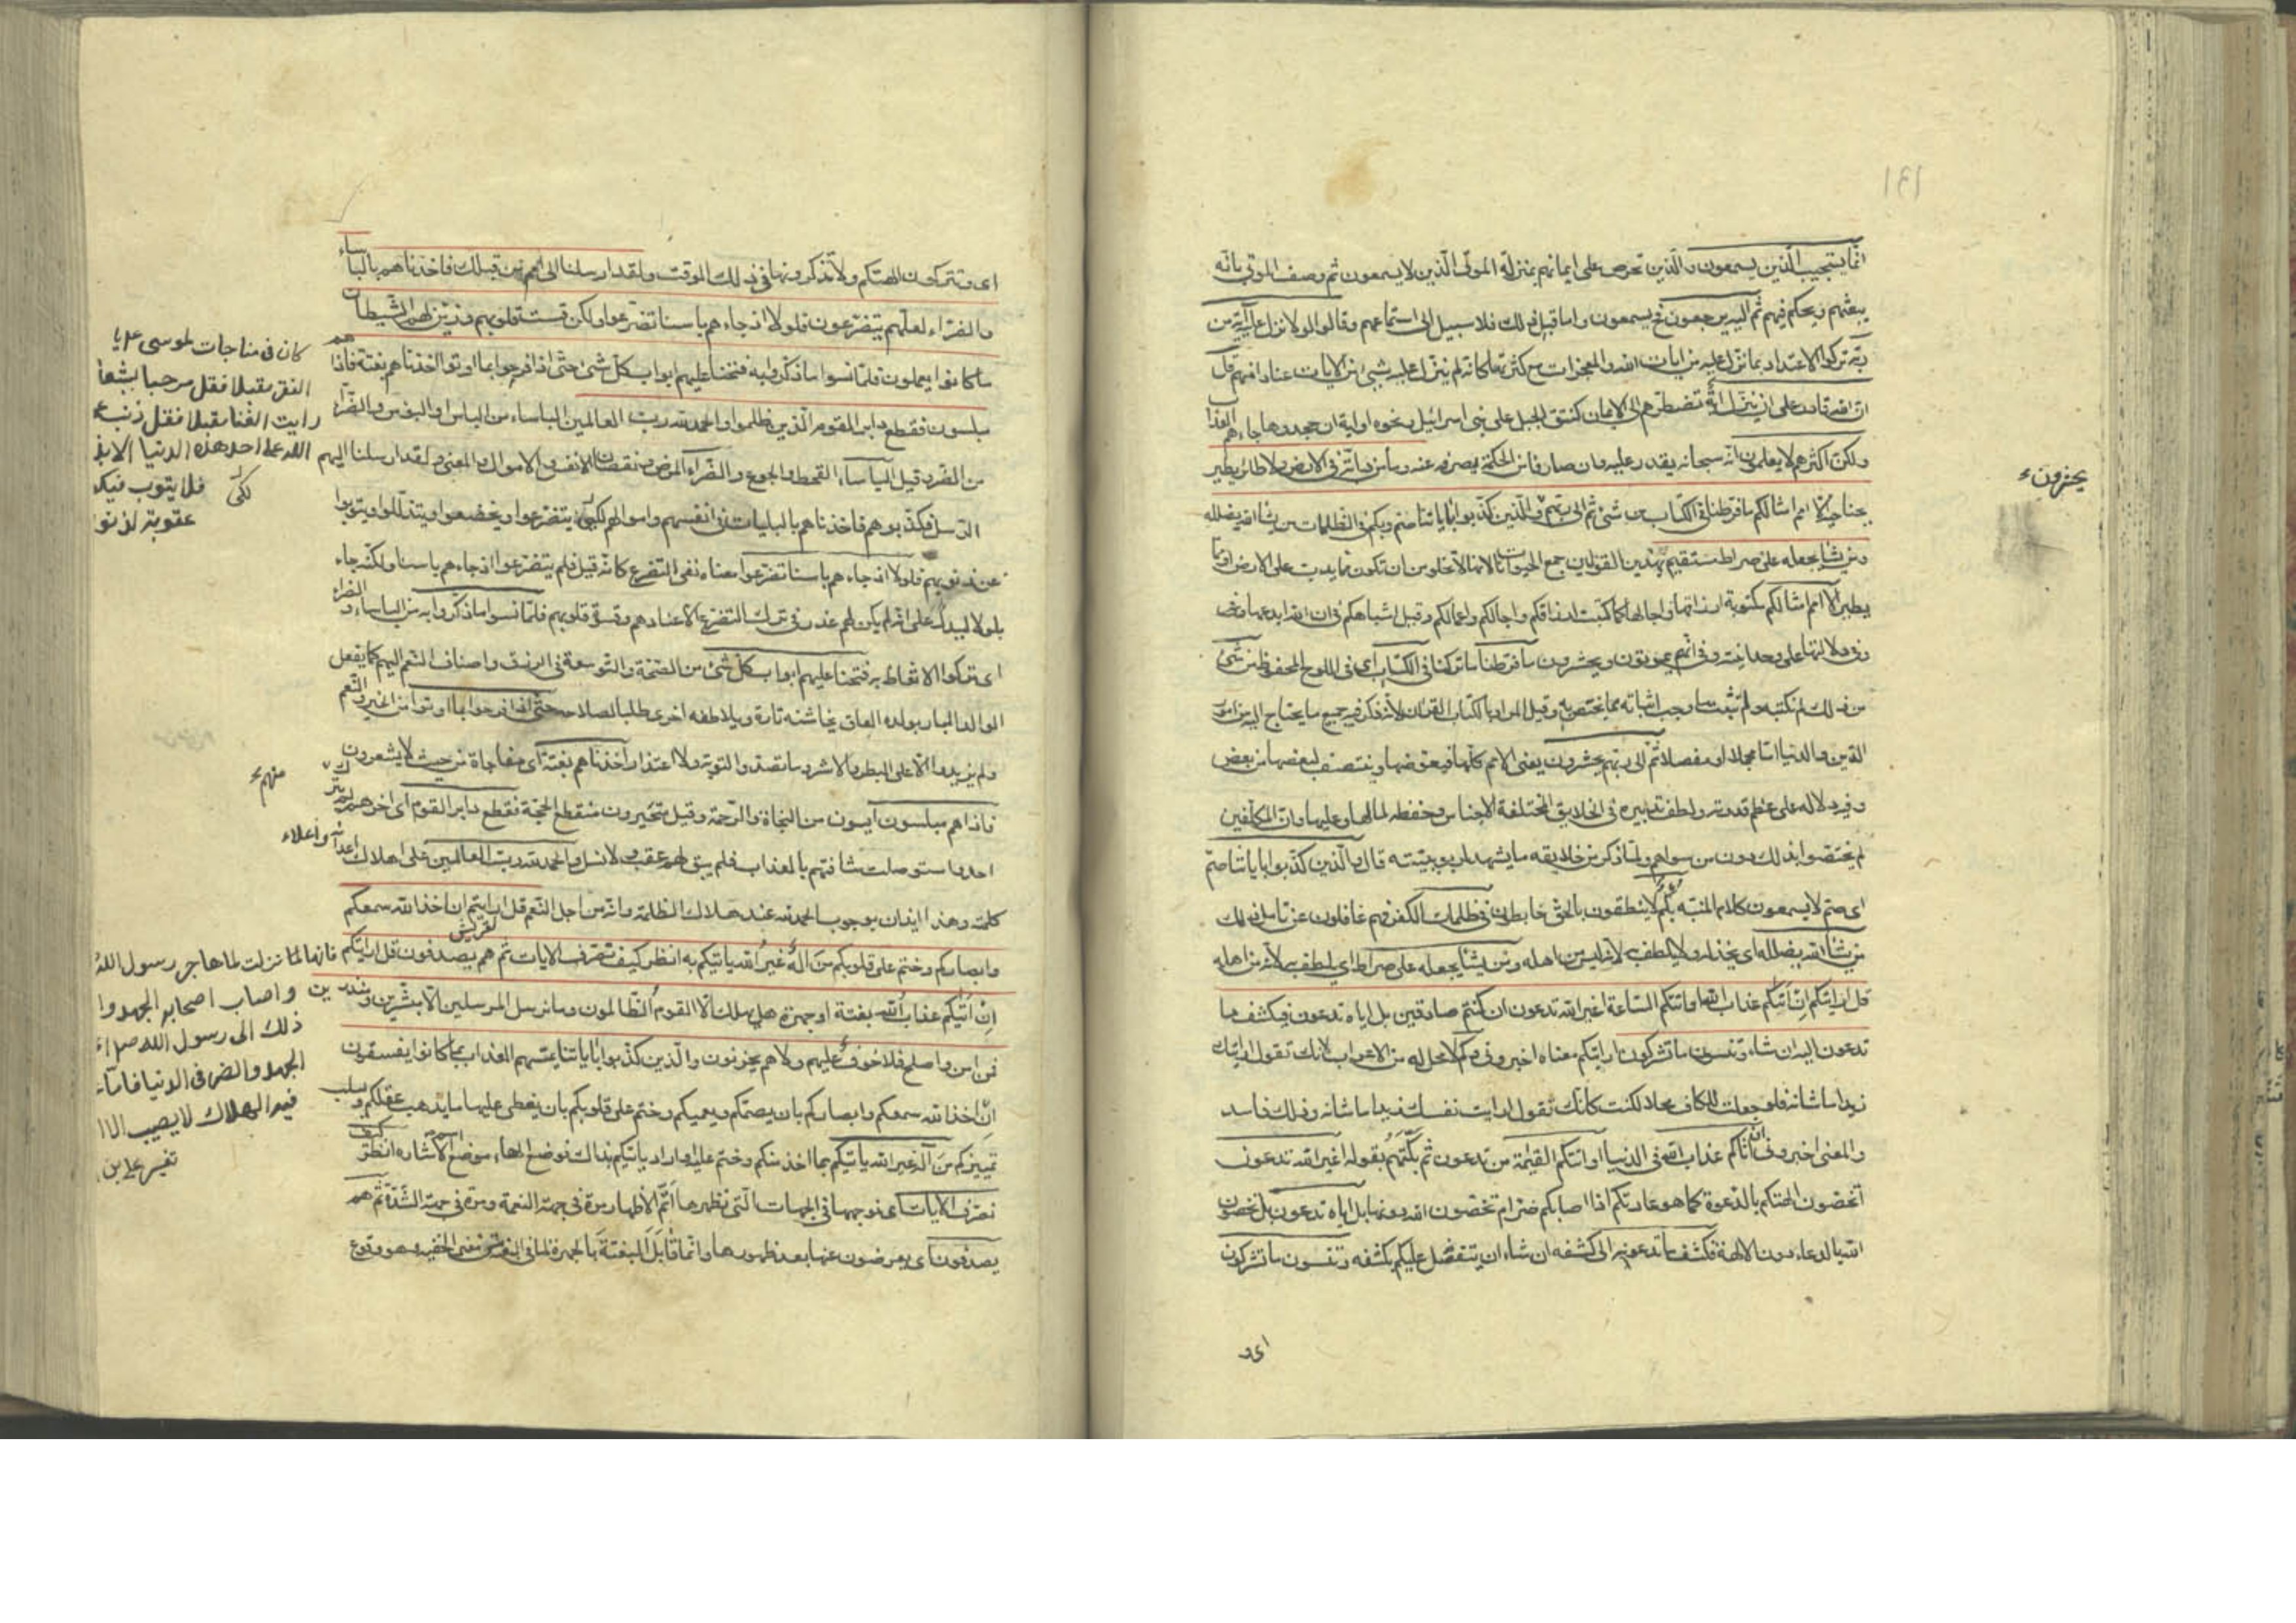 انما يستجيب الذين يسمعون والذين تحرص على ايمانهم بمنزلة الموتى الذين لا يسمعون ثم وصف الموتى بانه
يبعثهم ويحكم فيهم ثم اليه يرجعون فح يسمعون واما قبل ذلك فلا سبيل الى استماعهم وقالوا لولا نزل عليه آية من
ربه تركوا الاعتداد بما نزل عليه من ايات الله والمعجزات مع كثرتها كانه لم ينزل عليه شيء من الايات عنادا منهم قل
ان الله قادر على ان ينزل اية تضطرهم الى الايمان كنتق الجبل على بني اسرائيل ونحوه او اية ان جحدوها جاءهم العذاب
ولكن اكثرهم لا يعلمون انه سبحانه يقدر عليه وان صارفا من الحكمة يصرفه عنه وما من دابة في الارض ولا طائر يطير
بجناحيه الا امم امثالكم ما فرطنا في الكتاب من شئ ثم الى ربهم والذين كذبوا باياتنا صم وبكم في الظلمات من يشا الله يضلله
ومن يشا يجعله على صراط مستقيم بهذين القولين جمع الحيوانات لانها لا تخلو من ان تكون مما يدب على الارض او مما
يطير الا امم امثالكم مكتوبة ارزاقها واجالها كما كتبت ارزاقكم واجالكم واعمالكم وقيل اشباهكم في ان الله ابدعها
وفي دلالتها على وحدانيته وفي انهم يموتون ويحشرون ما فرطنا ما تركنا في الكتاب اي في اللوح المحفوظ من شئ
من ذلك لم نكتبه ولم نثبت ما وجب اثباته مما يختص به وقيل المراد بالكتاب القران لانه ذكر فيه جميع ما يحتاج اليه من امور
الدين والدنيا اما مجملا او مفصلا ثم الى ربهم يحشرون يعني الامم كلها فيعوضها وينتصف لبعضها من بعض
وفيه دلالة على عظم قدرته ولطف تدبيره في الخلايق المختلفة الاجناس وحفظه لما لها وعليها وان المكلفين
لم يختصوا بذلك دون من سواهم ولما ذكر من خلايقه ما يشهد لربوبيته قال والذين كذبوا باياتنا صم
اي صم لا يسمعون كلام المنبه بكم لا ينطقون بالحق خابطون في ظلمات الكفر فهم غافلون عن تامل ذلك
من يشا الله يضلله اي يخذله ولا يلطف به لانه ليس من اهله ومن يشا يجعله على صراط اي يلطف به لانه من اهله
قل ارايتكم ان اتيكم عذاب الله او اتتكم الساعة اغير الله تدعون ان كنتم صادقين بل اياه تدعون فيكشف ما
تدعون اليه ان شاء وتنسون ما تشركون ارايتكم معناه اخبروني وكم لا محل له من الاعراب لانك تقول ارايتك
زيدا ما شانه فلو جعلت للكاف محلا لكنت كانك تقول ارايت نفسك زيدا ما شانه وذلك فاسد
والمعنى اخبروني ان اتاكم عذاب الله في الدنيا او اتتكم القيمة من تدعون ثم بكتهم بقوله اغير الله تدعون
اتخصون الهتكم بالدعوة كما هو عادتكم اذا اصابكم ضر ام تخصون الله دونها بل اياه تدعون بل تخصون
الله بالدعاء دون الالهة فيكشف ما تدعونه الى كشفه ان شاء ان يتفضل عليكم بكشفه وتنسون ما تشركون
اى و
يحشرون
اى وتتركون الهتكم ولا تذكرونها في ذلك الوقت ولقد ارسلنا الى امم من قبلك فاخذناهم بالباساء
والضراء لعلهم يتضرعون فلولا اذ جاءهم باسنا تضرعوا ولكن قست قلوبهم وزين لهم الشيطان
ما كانوا يعملون فلما نسوا ما ذكروا به فتحنا عليهم ابواب كل شئ حتى اذا فرحوا بما اوتوا اخذناهم بغتة فاذا هم
مبلسون فقطع دابر القوم الذين ظلموا والحمد لله رب العالمين الباساء من الباس او البؤس والضراء
من الضر وقيل الباساء القحط والجوع والضراء المرض ونقصان الانفس والاموال والمعنى ولقد ارسلنا اليهم
الرسل فكذبوهم فاخذناهم بالبليات في انفسهم واموالهم لكي يتضرعوا ويخضعوا ويتذللوا ويتوبوا
عن ذنوبهم فلولا اذ جاءهم باسنا تضرعوا معناه نفي التضرع كانه قيل فلم يتضرعوا اذ جاءهم باسنا ولكنه جاء
بلولا ليدل على انه لم يكن لهم عذر في ترك التضرع الا عنادهم وقسوة قلوبهم فلما نسوا ما ذكروا به من الباساء والضراء
اى تركوا الاتعاظ به فتحنا عليهم ابواب كل شئ من الصحة والتوسعة في الرزق واصناف النعم اليهم كما يفعل
الوالد البار بولده العاق يخاشنه تارة ويلاطفه اخرى طلبا لصلاحه حتى اذا فرحوا بما اوتوا من الخير والنعم
ولم يزيدوا الا على البطر والاشر وما تصدوا التوبة ولا اعتذار اخذناهم بغتة اى مفاجاة من حيث لا يشعرون
فاذا هم مبلسون آيسون من النجاة والرحمة وقيل متحيرون منقطع الحجة فقطع دابر القوم اى اخرهم لم يترك
احد استوصلت شافتهم بالعذاب فلم يبق لهم عقب ولا نسل والحمد لله رب العالمين على اهلاك اعدائه واعلاء
كلمته وهذا ايذان بوجوب الحمد لله عند هلاك الظلمة وانه من اجل النعم قل ارايتم ان اخذ الله سمعكم
وابصاركم وختم على قلوبكم من اله غير الله ياتيكم به انظر كيف نصرف الايات ثم هم يصدفون قل ارايتكم
ان اتيكم عذاب الله بغتة او جهرة هل يهلك الا القوم الظالمون وما نرسل المرسلين الا مبشرين ومنذرين
فمن امن واصلح فلا خوف عليهم ولا هم يحزنون والذين كذبوا باياتنا يمسهم العذاب بما كانوا يفسقون
ان اخذ الله سمعكم وابصاركم بان يصمكم ويعميكم وختم على قلوبكم بان يغطى عليها ما يذهب عقلكم ويسلب
تمييزكم من اله غير الله ياتيكم بما اخذ منكم وختم عليه او اراد ياتيكم بذاك فوضع الهاء موضع اسم الاشاره انظر كيف
نصرف الايات اى نوجهها في الجهات التي نظهرها اتم الاظهار مرة في جهة النعمة ومرة في جهة الشدة ثم هم
يصدفون اى يعرضون عنها بعد ظهورها وانما قابل البغتة بالجهرة لما في البغتة من معنى الخفية وهو وقوع
كان في مناجات لموسى ع يا
الفقر مقبلا فقل مرحبا بشعا
رايت الغنا مقبلا فقل ذنب ع
الله على احد هذه الدنيا الا بذ
فلا يتوب فيكو
عقوبة لذنو
لكى
منهم
فانها لما نزلت لما هاجر رسول الله
واصاب اصحابه الجهد وا
ذلك الى رسول الله ص
الجهد والضر في الدنيا فاما
فيه الهلاك لا يصيب الا ا
تفسير على بن